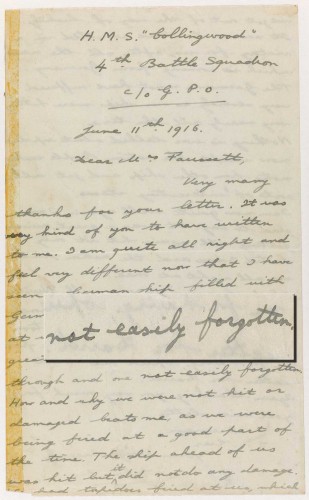 H.M.S. "Collingwood"
4th Battle Squadron
c/o G.P.O.
June 11th 1916.
Dear Mrs Faussett,
Very many
thanks for your letter. It was
very kind of you to have written
to me. I am quite all right and
feel very different now that I have
seen a German ship filled with
not easily forgotten.
at
great
through and one not easily forgotten
How and why we were not hit or
damaged beats me, as we were
being fired at a good part of
the time. The ship ahead of us
was hit but it did not do any damage.
had torpedoes fired at us, which